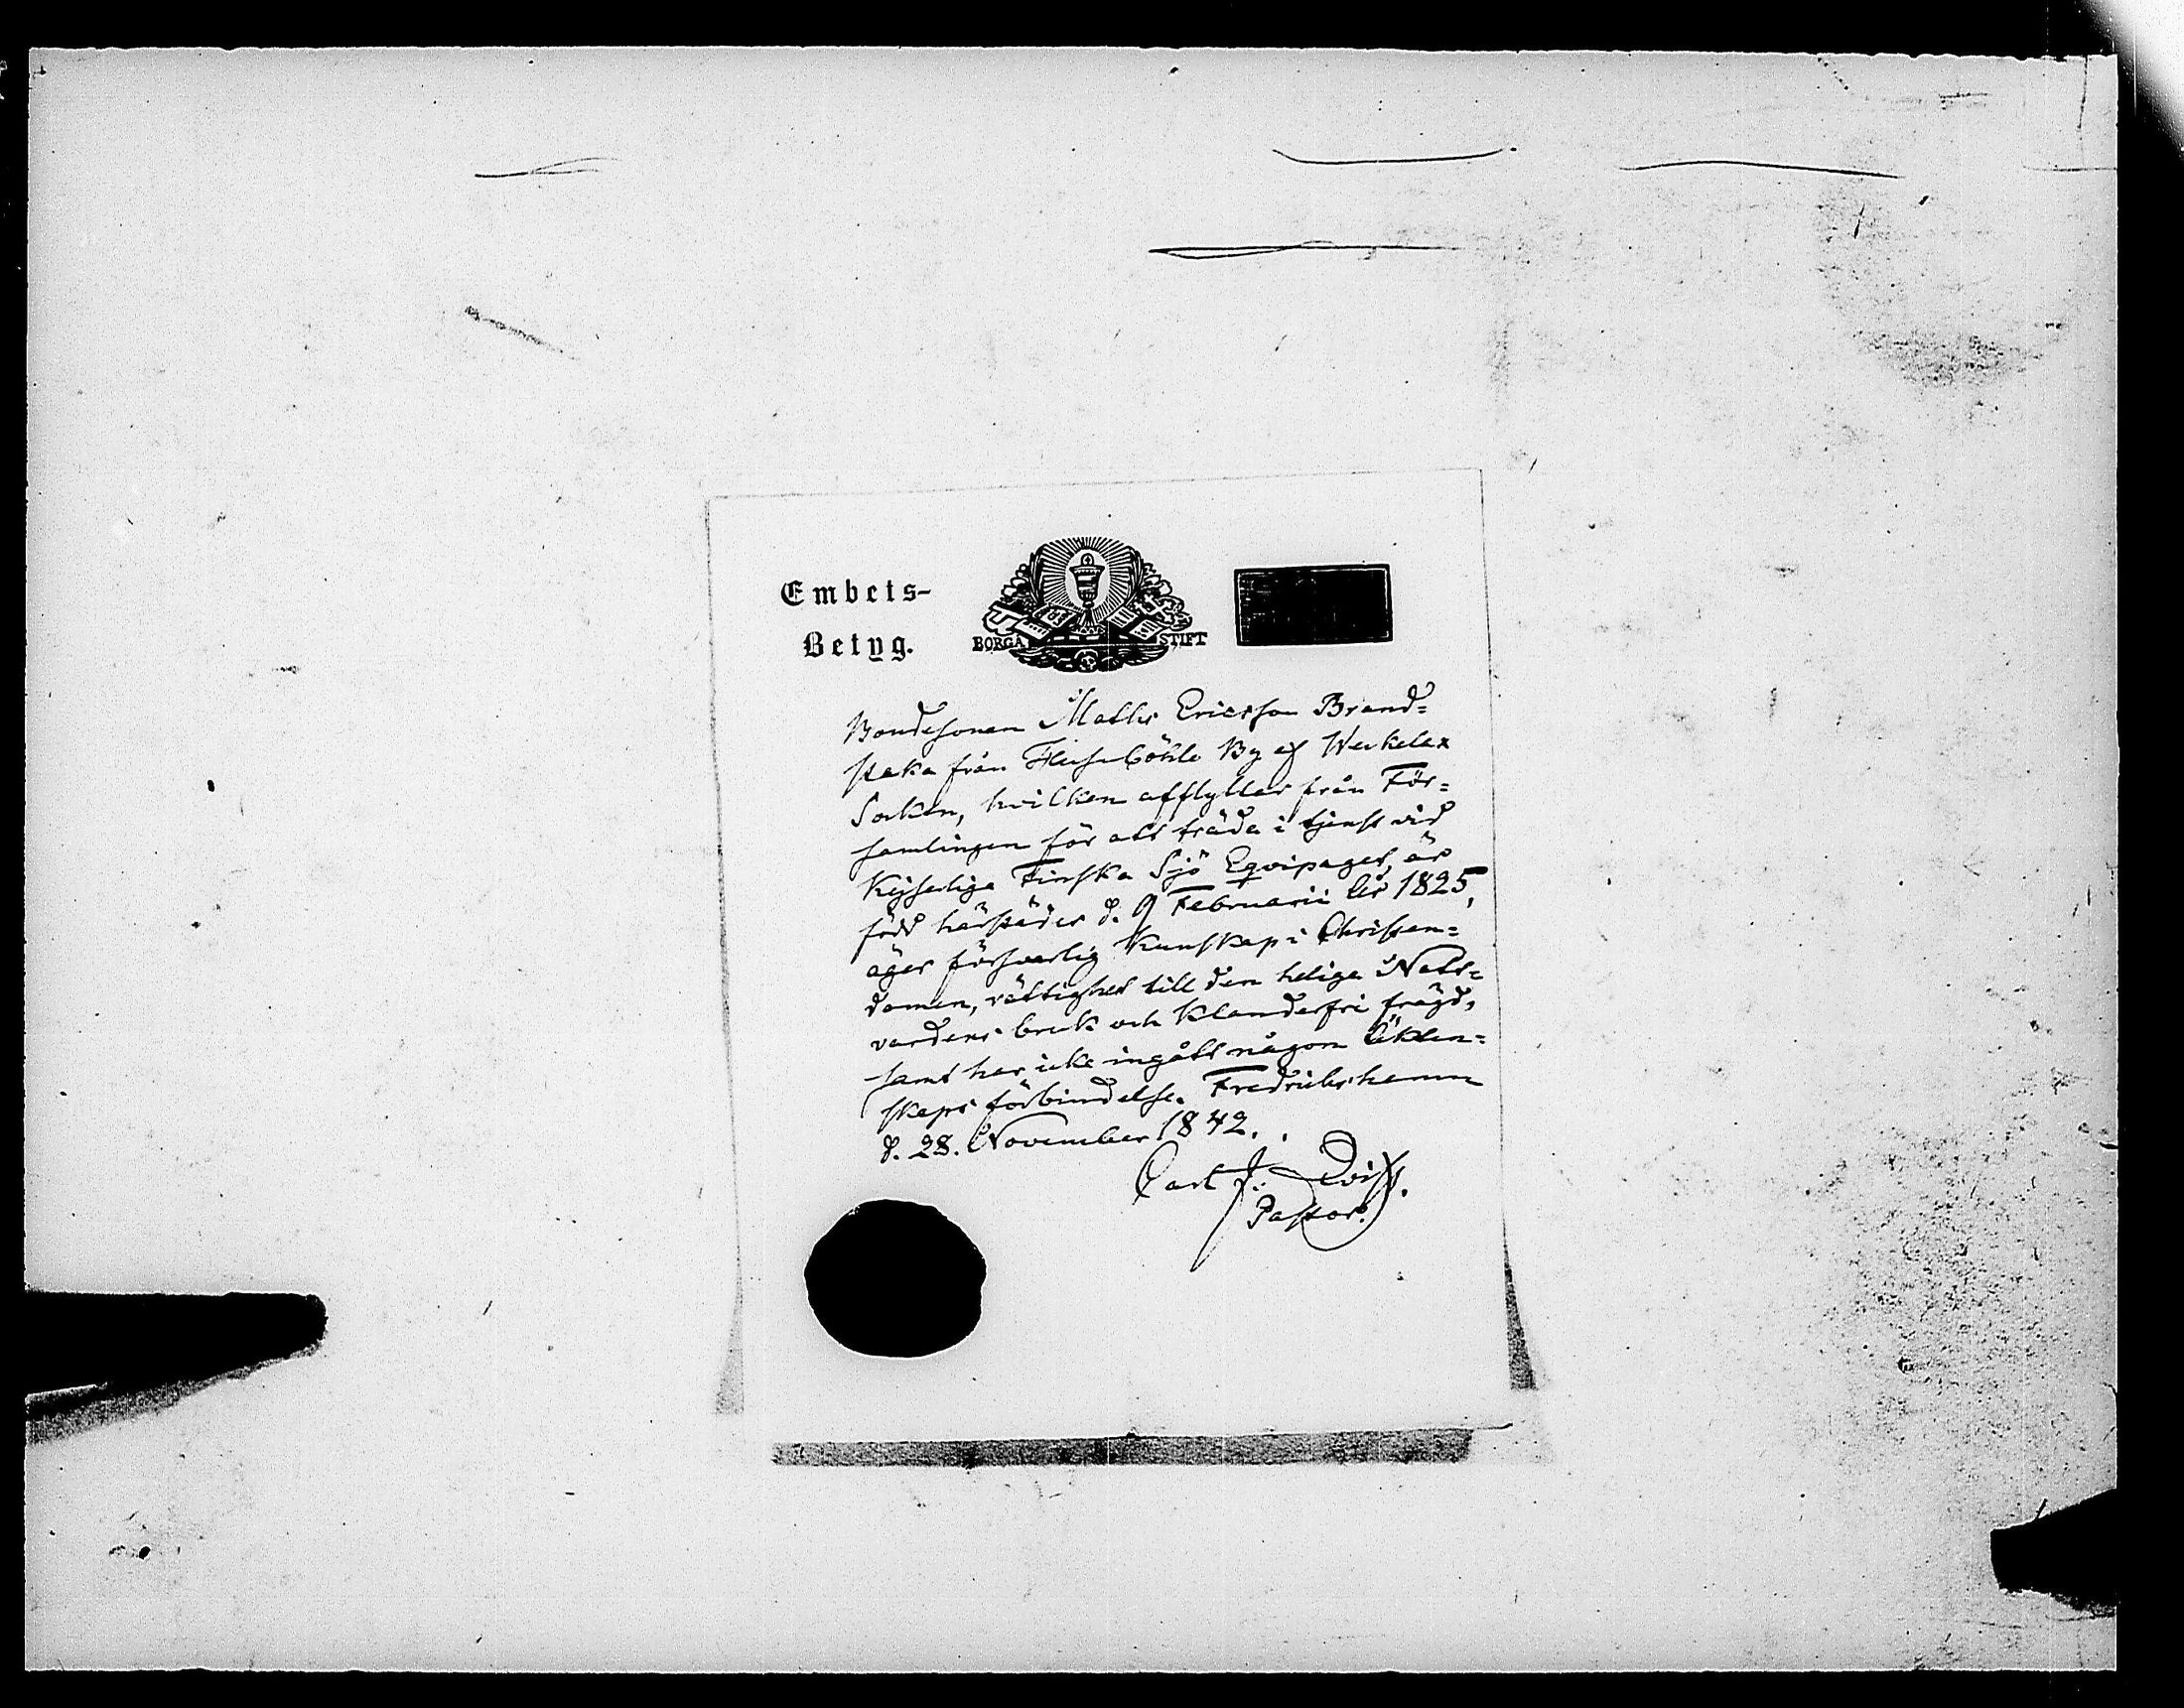 Embets-
Betyg.
BORGA STIFT
Bondesonen Maths Ericsson Brand=
staka från Husuböhle By af Weckelax
Socken, hvilken afflyttar från För=
samlingen för att träda i tjenst vid
Kejserliga Finska Sjö Eqvipaget, är
född härstädes d. 9 Februarii år 1825,
äger försvarlig kunskap i Christen=
domen, rättighet till den heliga Natt=
vardens bruk och klanderfri frägd,
samt har icke ingått någon Äkten=
skaps förbindelse. Fredrikshamn
d. 28. November 1842.
Carl J:
Pastor.